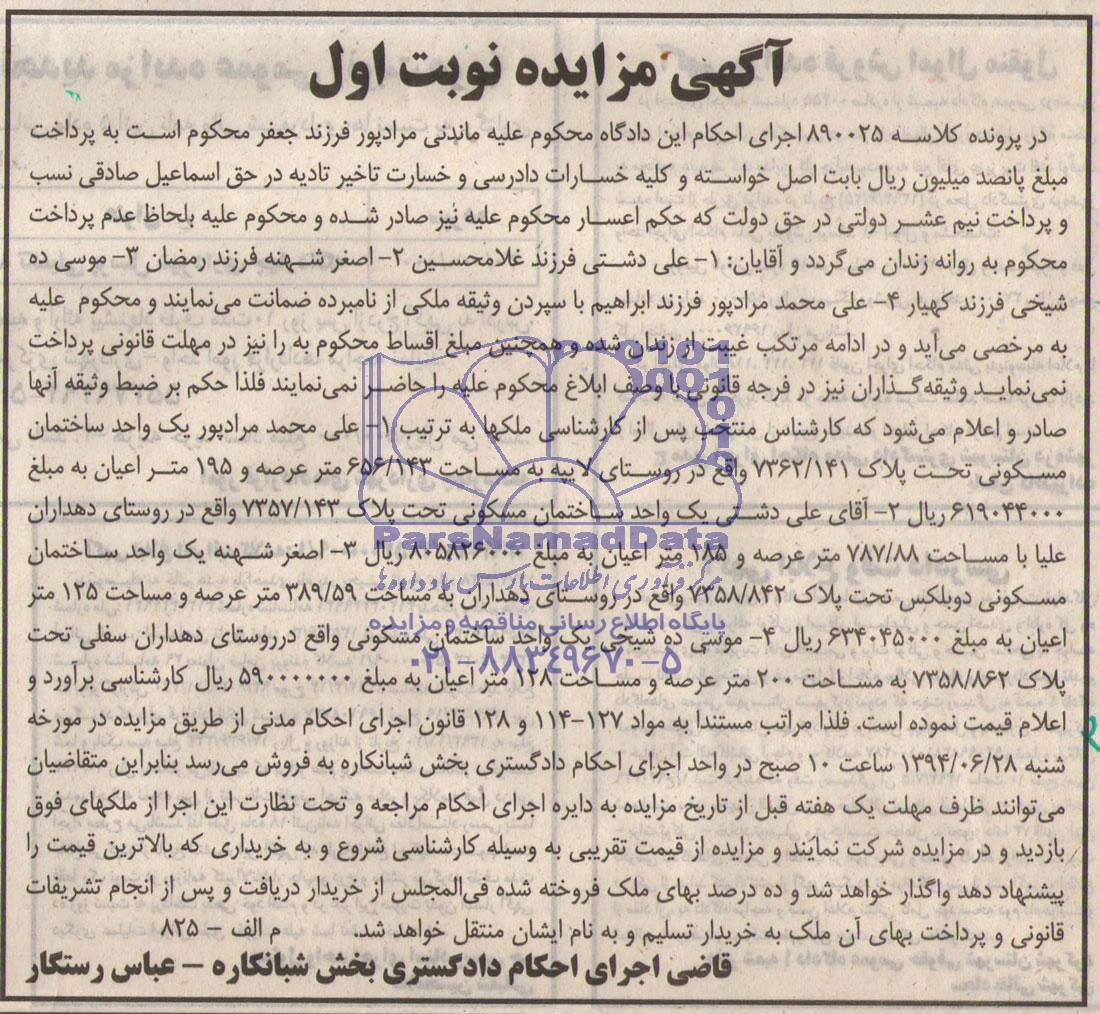 آگهی مزایده نوبت اول
در پرونده کلاسه ۸۹۰۰۲۵ اجرای احکام این دادگاه محکوم علیه ماندنی مرادپور فرزند جعفر محکوم است به پرداخت
مبلغ پانصد میلیون ریال بابت اصل خواسته و کلیه خسارات دادرسی و خسارت تاخیر تادیه در حق اسماعیل صادقی نسب
و پرداخت نیم عشر دولتی در حق دولت که حکم اعسار محکوم علیه نیز صادر شده و محکوم علیه بلحاظ عدم پرداخت
محکوم به روانه زندان می‌گردد و آقایان: ۱- علی دشتی فرزند غلامحسین ۲- اصغر شهنه فرزند رمضان ۳- موسی ده
شیخی فرزند کهیار ۴- علی محمد مرادپور فرزند ابراهیم با سپردن وثیقه ملکی از نامبرده ضمانت می‌نمایند و محکوم علیه
به مرخصی می‌آید و در ادامه مرتکب غیبت از زندان شده و همچنین مبلغ اقساط محکوم به را نیز در مهلت قانونی پرداخت
نمی‌نماید وثیقه‌گذاران نیز در فرجه قانونی با وصف ابلاغ محکوم علیه را حاضر نمی‌نمایند فلذا حکم بر ضبط وثیقه آنها
صادر و اعلام می‌شود که کارشناس منتخب پس از کارشناسی ملکها به ترتیب ۱- علی محمد مرادپور یک واحد ساختمان
مسکونی تحت پلاک ۷۳۶۲/۱۴۱ واقع در روستای لاپیه به مساحت ۶۵۶/۱۴۳ متر عرصه و ۱۹۵ متر اعیان به مبلغ
۶۱۹۰۴۴۰۰۰ ریال ۲- آقای علی دشتی یک واحد ساختمان مسکونی تحت پلاک ۷۳۵۷/۱۴۳ واقع در روستای دهداران
علیا با مساحت ۷۸۷/۸۸ متر عرصه و ۱۸۵ متر اعیان به مبلغ ۸۰۵۸۲۶۰۰۰ ریال ۳- اصغر شهنه یک واحد ساختمان
مسکونی دوبلکس تحت پلاک ۷۳۵۸/۸۴۲ واقع در روستای دهداران به مساحت ۳۸۹/۵۹ متر عرصه و مساحت ۱۲۵ متر
اعیان به مبلغ ۶۳۴۰۴۵۰۰۰ ریال ۴- موسی ده شیخی یک واحد ساختمان مسکونی واقع درروستای دهداران سفلی تحت
پلاک ۷۳۵۸/۸۶۲ به مساحت ۲۰۰ متر عرصه و مساحت ۱۲۸ متر اعیان به مبلغ ۵۹۰۰۰۰۰۰۰ ریال کارشناسی برآورد و
اعلام قیمت نموده است. فلذا مراتب مستندا به مواد ۱۲۷-۱۱۴ و ۱۲۸ قانون اجرای احکام مدنی از طریق مزایده در مورخه
شنبه ۱۳۹۴/۰۶/۲۸ ساعت ۱۰ صبح در واحد اجرای احکام دادگستری بخش شبانکاره به فروش می‌رسد بنابراین متقاضیان
می‌توانند ظرف مهلت یک هفته قبل از تاریخ مزایده به دایره اجرای احکام مراجعه و تحت نظارت این اجرا از ملکهای فوق
بازدید و در مزایده شرکت نمایند و مزایده از قیمت تقریبی به وسیله کارشناسی شروع و به خریداری که بالاترین قیمت را
پیشنهاد دهد واگذار خواهد شد و ده درصد بهای ملک فروخته شده فی‌المجلس از خریدار دریافت و پس از انجام تشریفات
قانونی و پرداخت بهای آن ملک به خریدار تسلیم و به نام ایشان منتقل خواهد شد. م الف - ۸۲۵
قاضی اجرای احکام دادگستری بخش شبانکاره - عباس رستگار
ParsNamadData
مرکز فرآوری اطلاعات پارس نماد داده‌ها
پایگاه اطلاع رسانی مناقصه و مزایده
۰۲۱-۸۸۳۴۹۶۷۰-۵